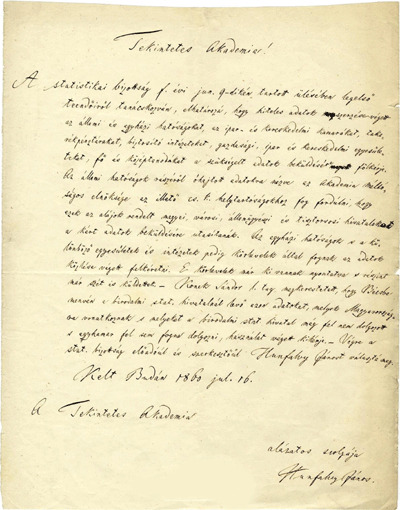 Tekintetes Akademia!
A statistikai bizottság f. évi jun. 9-dikén tartott ülésében legelső
teendőiről tanácskozván, elhatározá, hogy hiteles adatok végett
az állami és egyházi hatóságokat, az ipar- és kereskedelmi kamarákat, taka-
rékpénztárakat, biztosító intézeteket, gazdasági, ipar és kereskedelmi egyesüle-
teket, fő és középtanodákat a szükségelt adatok beküldésére fölkérje.
Az állami hatóságok részéről óhajtott adatokra nézve az akademia méltó-
ságos elnöksége az illető cs. k. helytartóságokhoz fog fordulni, hogy
ezek az alájok rendelt megyei, városi, államügyi és tisztorvosi hivatalokat
a kért adatok beküldésére utasítanák. Az egyházi hatóságok s a kü-
lönböző egyesületek és intézetek pedig körlevelek által fognak az adatok
közlése végett felkéretni. E körlevelek már ki vannak nyomtatva s részint
már szét is küldettek. – Konek Sándor l. tag megkerestetett, hogy Bécsbe
menvén a birodalmi stat. hivatalnál lévő azon adatokat, melyek Magyarország-
ra vonatkoznak s melyeket a birodalmi stat. hivatal még fel nem dolgozott
s egyhamar fel nem fogna dolgozni, használat végett kikérje. – Végre a
stat. bizottság előadóul és szerkesztőül Hunfalvy Jánost választá meg.
Kelt Budán 1860 jul. 16.
A Tekintetes Akademia
alázatos szolgája
Hunfalvy János.